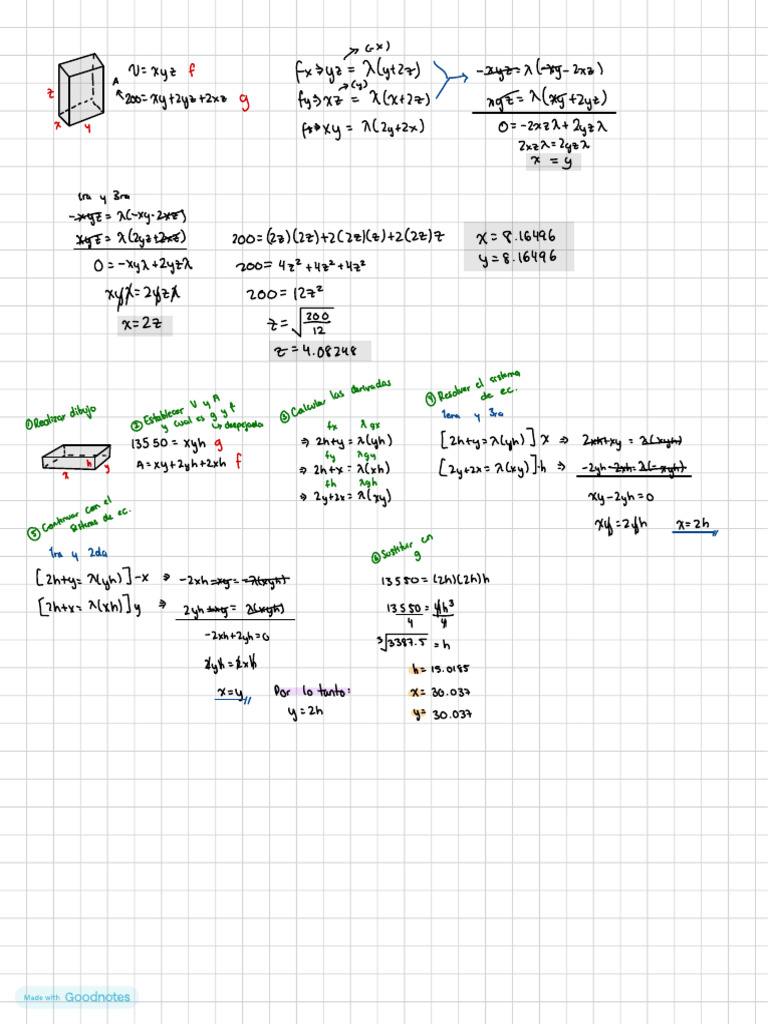 V = xyz f
A
200 = xy + 2yz + 2xz g
z
x
y
(-x)
fx ⇒ yz = λ(y+2z)
(y)
fy ⇒ xz = λ(x+2z)
fz ⇒ xy = λ(2y+2x)
-xyz = λ(-xy-2xz)
xyz = λ(xy+2yz)
0 = -2xzλ + 2yzλ
2xzλ = 2yzλ
x = y
1ra y 3ra
-xyz = λ(-xy-2xz)
xyz = λ(2yz+2xz)
0 = -xyλ + 2yzλ
xyλ = 2yzλ
x = 2z
200 = (2z)(2z) + 2(2z)(z) + 2(2z)z
200 = 4z² + 4z² + 4z²
200 = 12z²
z = √(200/12)
z = 4.08248
x = 8.16496
y = 8.16496
① Realizar dibujo
h
y
x
② Establecer V y A
y cual es g y f
↳ despejada
13550 = xyh g
A = xy + 2yh + 2xh f
③ Calcular las derivadas
fx λgx
⇒ 2h+y = λ(yh)
fy λgy
⇒ 2h+x = λ(xh)
fh λgh
⇒ 2y+2x = λ(xy)
④ Resolver el sistema
de ec.
1era y 3ra
[2h+y = λ(yh)] x ⇒ 2xh+xy = λ(xyh)
[2y+2x = λ(xy)]-h ⇒ -2yh-2xh = λ(-xyh)
xy-2yh = 0
xy = 2yh x = 2h
⑤ Continuar con el
sistema de ec.
1ra y 2da
[2h+y = λ(yh)] -x ⇒ -2xh-xy = -λ(xyh)
[2h+x = λ(xh)] y ⇒ 2yh+xy = λ(xyh)
-2xh+2yh = 0
2yh = 2xh
x = y
Por lo tanto:
y = 2h
⑥ Sustituir en
g
13550 = (2h)(2h)h
13550/4 = 4h³/4
³√3387.5 = h
h = 15.0185
x = 30.037
y = 30.037
Made with Goodnotes